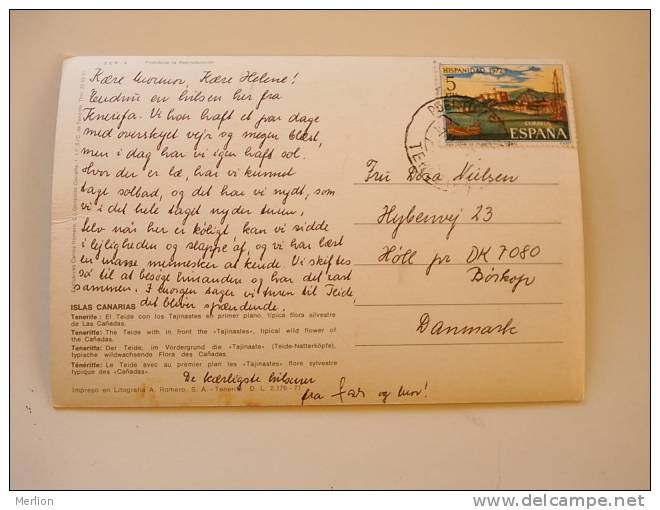 Kære mormor, Kære Helene!
Endnu en hilsen her fra
Tenerifa. Vi har haft et par dage
med overskyet vejr og megen blæst,
men i dag har vi igen haft sol.
Hvor der er læ, har vi kunnet
tage solbad, og det har vi nydt, som
vi i det hele taget nyder turen.
Selv når her er køligt kan vi sidde
i lejligheden og slappe af, og vi har lært
en masse mennesker at kende. Vi skiftes
så til at besøge hinanden og har det rart
sammen. I morgen tager vi turen til Teide,
det bliver spændende.
ISLAS CANARIAS
Tenerife: El Teide con los Tajinastes en primer plano, típica flora silvestre
de Las Cañadas.
Tenerife: The Teide with in front the «Tajinastes», tipical wild flower of
the Cañadas.
Teneriffa: Der Teide, im Vordergrund die «Tajinaste» (Teide-Natterköpfe),
typische wildwachsende Flora des Cañadas.
Ténériffe: Le Teide avec au premier plan les «Tajinastes» flore sylvestre
typique des «Cañadas».
De kærligste hilsener
fra far og mor!
Impreso en Litografía A. Romero, S. A. - Tenerife D. L. 2.176 - 71
HISPANIDAD 1973
5
CORREOS
ESPAÑA
Fru Dora Nielsen
Hybenvej 23
Höll pr DK 7080
Börkop
Danmark
Merlion
http://www.delcampe.net